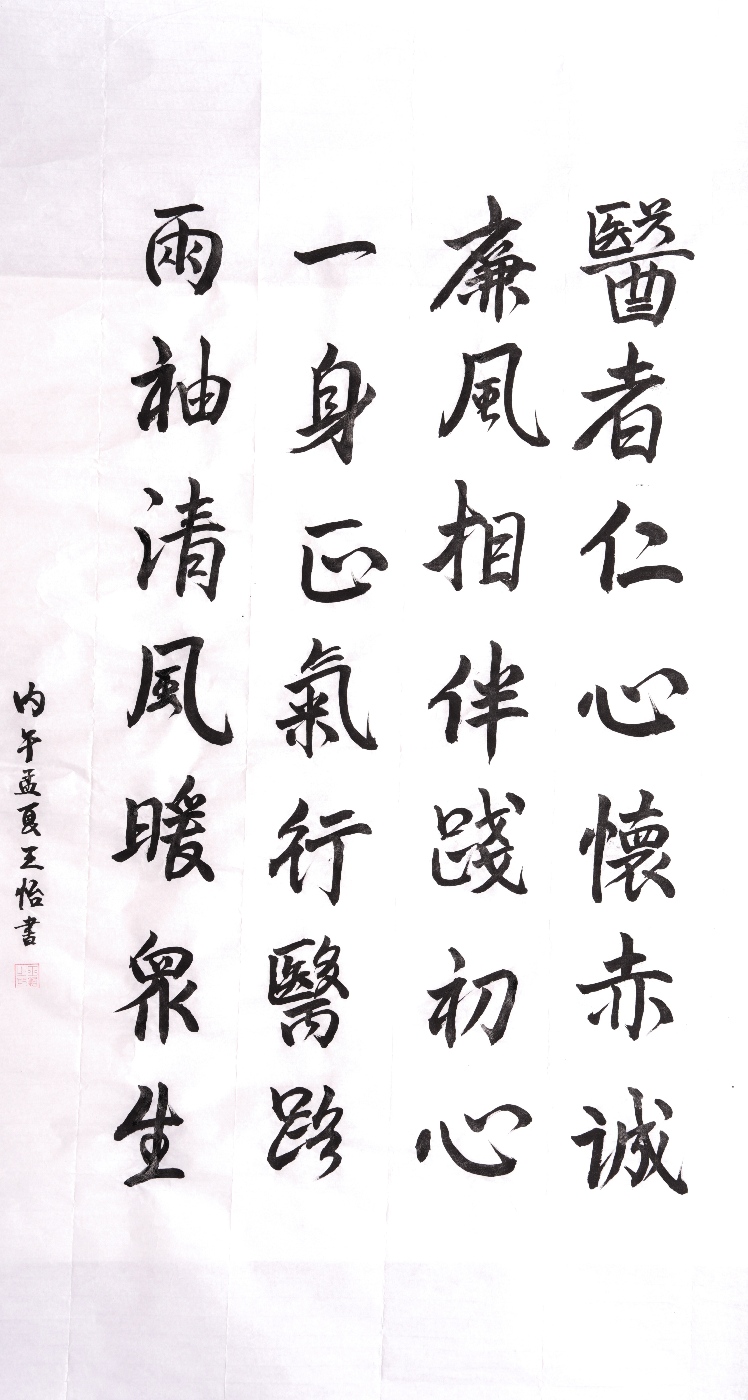 醫者仁心懷赤誠
廉風相伴踐初心
一身正氣行醫路
兩袖清風暖眾生
丙午孟夏王怡書